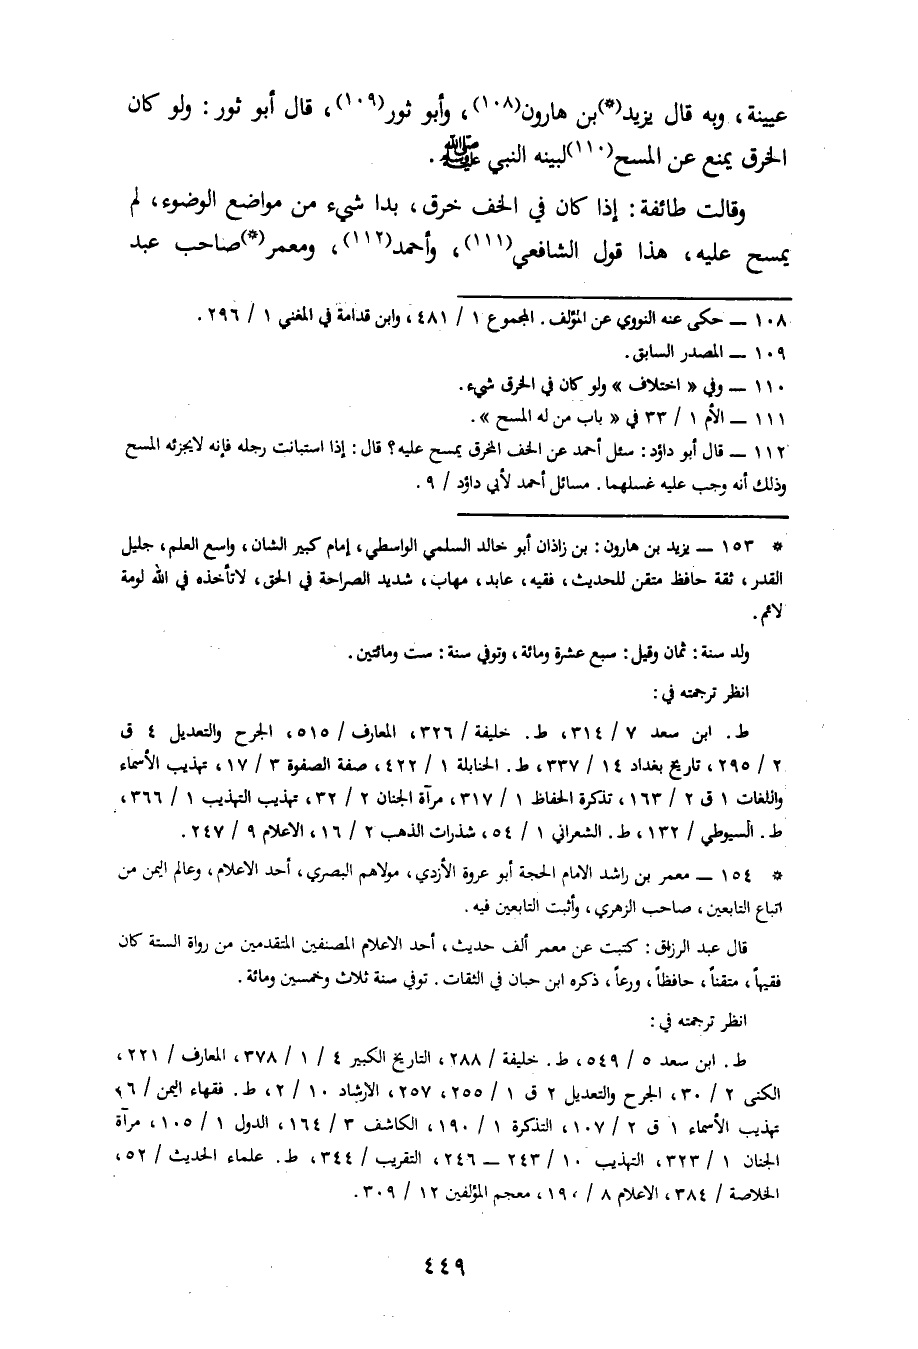 عيينة، وبه قال يزيد(*)بن هارون(١٠٨)، وأبو ثور(١٠٩)، قال أبو ثور: ولو كان
الخرق يمنع عن المسح(١١٠)لبينه النبي ﷺ.
وقالت طائفة: إذا كان في الخف خرق، بدا شيء من مواضع الوضوء، لم
يمسح عليه، هذا قول الشافعي(١١١)، وأحمد(١١٢)، ومعمر(*)صاحب عبد
١٠٨ — حكى عنه النووي عن المؤلف. المجموع ١ / ٤٨١، وابن قدامة في المغني ١ / ٢٩٦.
١٠٩ — المصدر السابق.
١١٠ — وفي « اختلاف » ولو كان في الخرق شيء.
١١١ — الأم ١ / ٣٣ في « باب من له المسح ».
١١٢ — قال أبو داؤد: سئل أحمد عن الخف المخرق يمسح عليه؟ قال: إذا استبانت رجله فإنه لايجزئه المسح
وذلك أنه وجب عليه غسلهما. مسائل أحمد لأبي داؤد / ٩.
* ١٥٣ — يزيد بن هارون: بن زاذان أبو خالد السلمي الواسطي، إمام كبير الشان، واسع العلم، جليل
القدر، ثقة حافظ متقن للحديث، فقيه، عابد، مهاب، شديد الصراحة في الحق، لاتأخذه في الله لومة
لائم.
ولد سنة: ثمان وقيل: سبع عشرة ومائة، وتوفي سنة: ست ومائتين.
انظر ترجمته في:
ط. ابن سعد ٧ / ٣١٤، ط. خليفة / ٣٢٦، المعارف / ٥١٥، الجرح والتعديل ٤ ق
٢ / ٢٩٥، تاريخ بغداد ١٤ / ٣٣٧، ط. الحنابلة ١ / ٤٢٢، صفة الصفوة ٣ / ١٧، تهذيب الأسماء
واللغات ١ ق ٢ / ١٦٣، تذكرة الحفاظ ١ / ٣١٧، مرآة الجنان ٢ / ٣٢، تهذيب التهذيب ١ / ٣٦٦،
ط. السيوطي / ١٣٢، ط. الشعراني ١ / ٥٤، شذرات الذهب ٢ / ١٦، الاعلام ٩ / ٢٤٧.
* ١٥٤ — معمر بن راشد الامام الحجة أبو عروة الأزدي، مولاهم البصري، أحد الاعلام، وعالم اليمن من
اتباع التابعين، صاحب الزهري، وأثبت التابعين فيه.
قال عبد الرزاق: كتبت عن معمر ألف حديث، أحد الاعلام المصنفين المتقدمين من رواة الستة كان
فقيهاً، متقناً، حافظاً، ورعاً، ذكره ابن حبان في الثقات. توفي سنة ثلاث وخمسين ومائة.
انظر ترجمته في:
ط. ابن سعد ٥ / ٥٤٩، ط. خليفة / ٢٨٨، التاريخ الكبير ٤ / ١ / ٣٧٨، المعارف / ٢٢١،
الكنى ٢ / ٣٠، الجرح والتعديل ٢ ق ١ / ٢٥٥، ٢٥٧، الارشاد ١٠ / ٢، ط. فقهاء اليمن /
تهذيب الأسماء ١ ق ٢ / ١٠٧، التذكرة ١ / ١٩٠، الكاشف ٣ / ١٦٤، الدول ١ / ١٠٥، مرآة
الجنان ١ / ٣٢٣، التهذيب ١٠ / ٢٤٣ — ٢٤٦، التقريب / ٣٤٤، ط. علماء الحديث / ٥٢،
الخلاصة / ٣٨٤، الاعلام ٨ / ١٩٠، معجم المؤلفين ١٢ / ٣٠٩.
٤٤٩